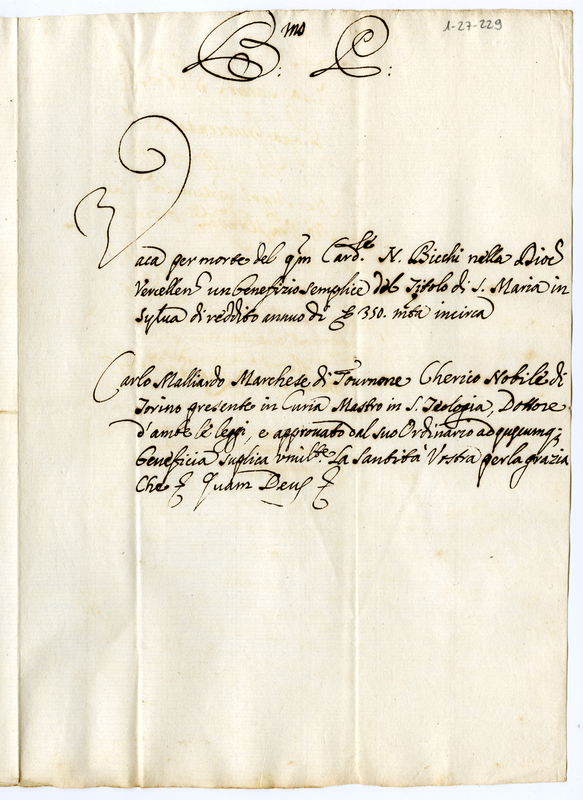 1-27-229
B.mo P.
Vaca per morte del qm Card.le N. Bicchi nella Dioc
Vercellen un benefizio semplice del Titolo di S. Maria in
Sylva di reddito annuo di 350. mta incirca
Carlo Malliardo Marchese di Tournone Cherico Nobile di
Torino presente in Curia Mastro in S. Teologia, Dottore
d'ambe le leggi, e approvato dal suo Ordinario ad qucumq;
beneficia suplica vmilte. La Santità Vostra per la grazia
Che Quam Deus